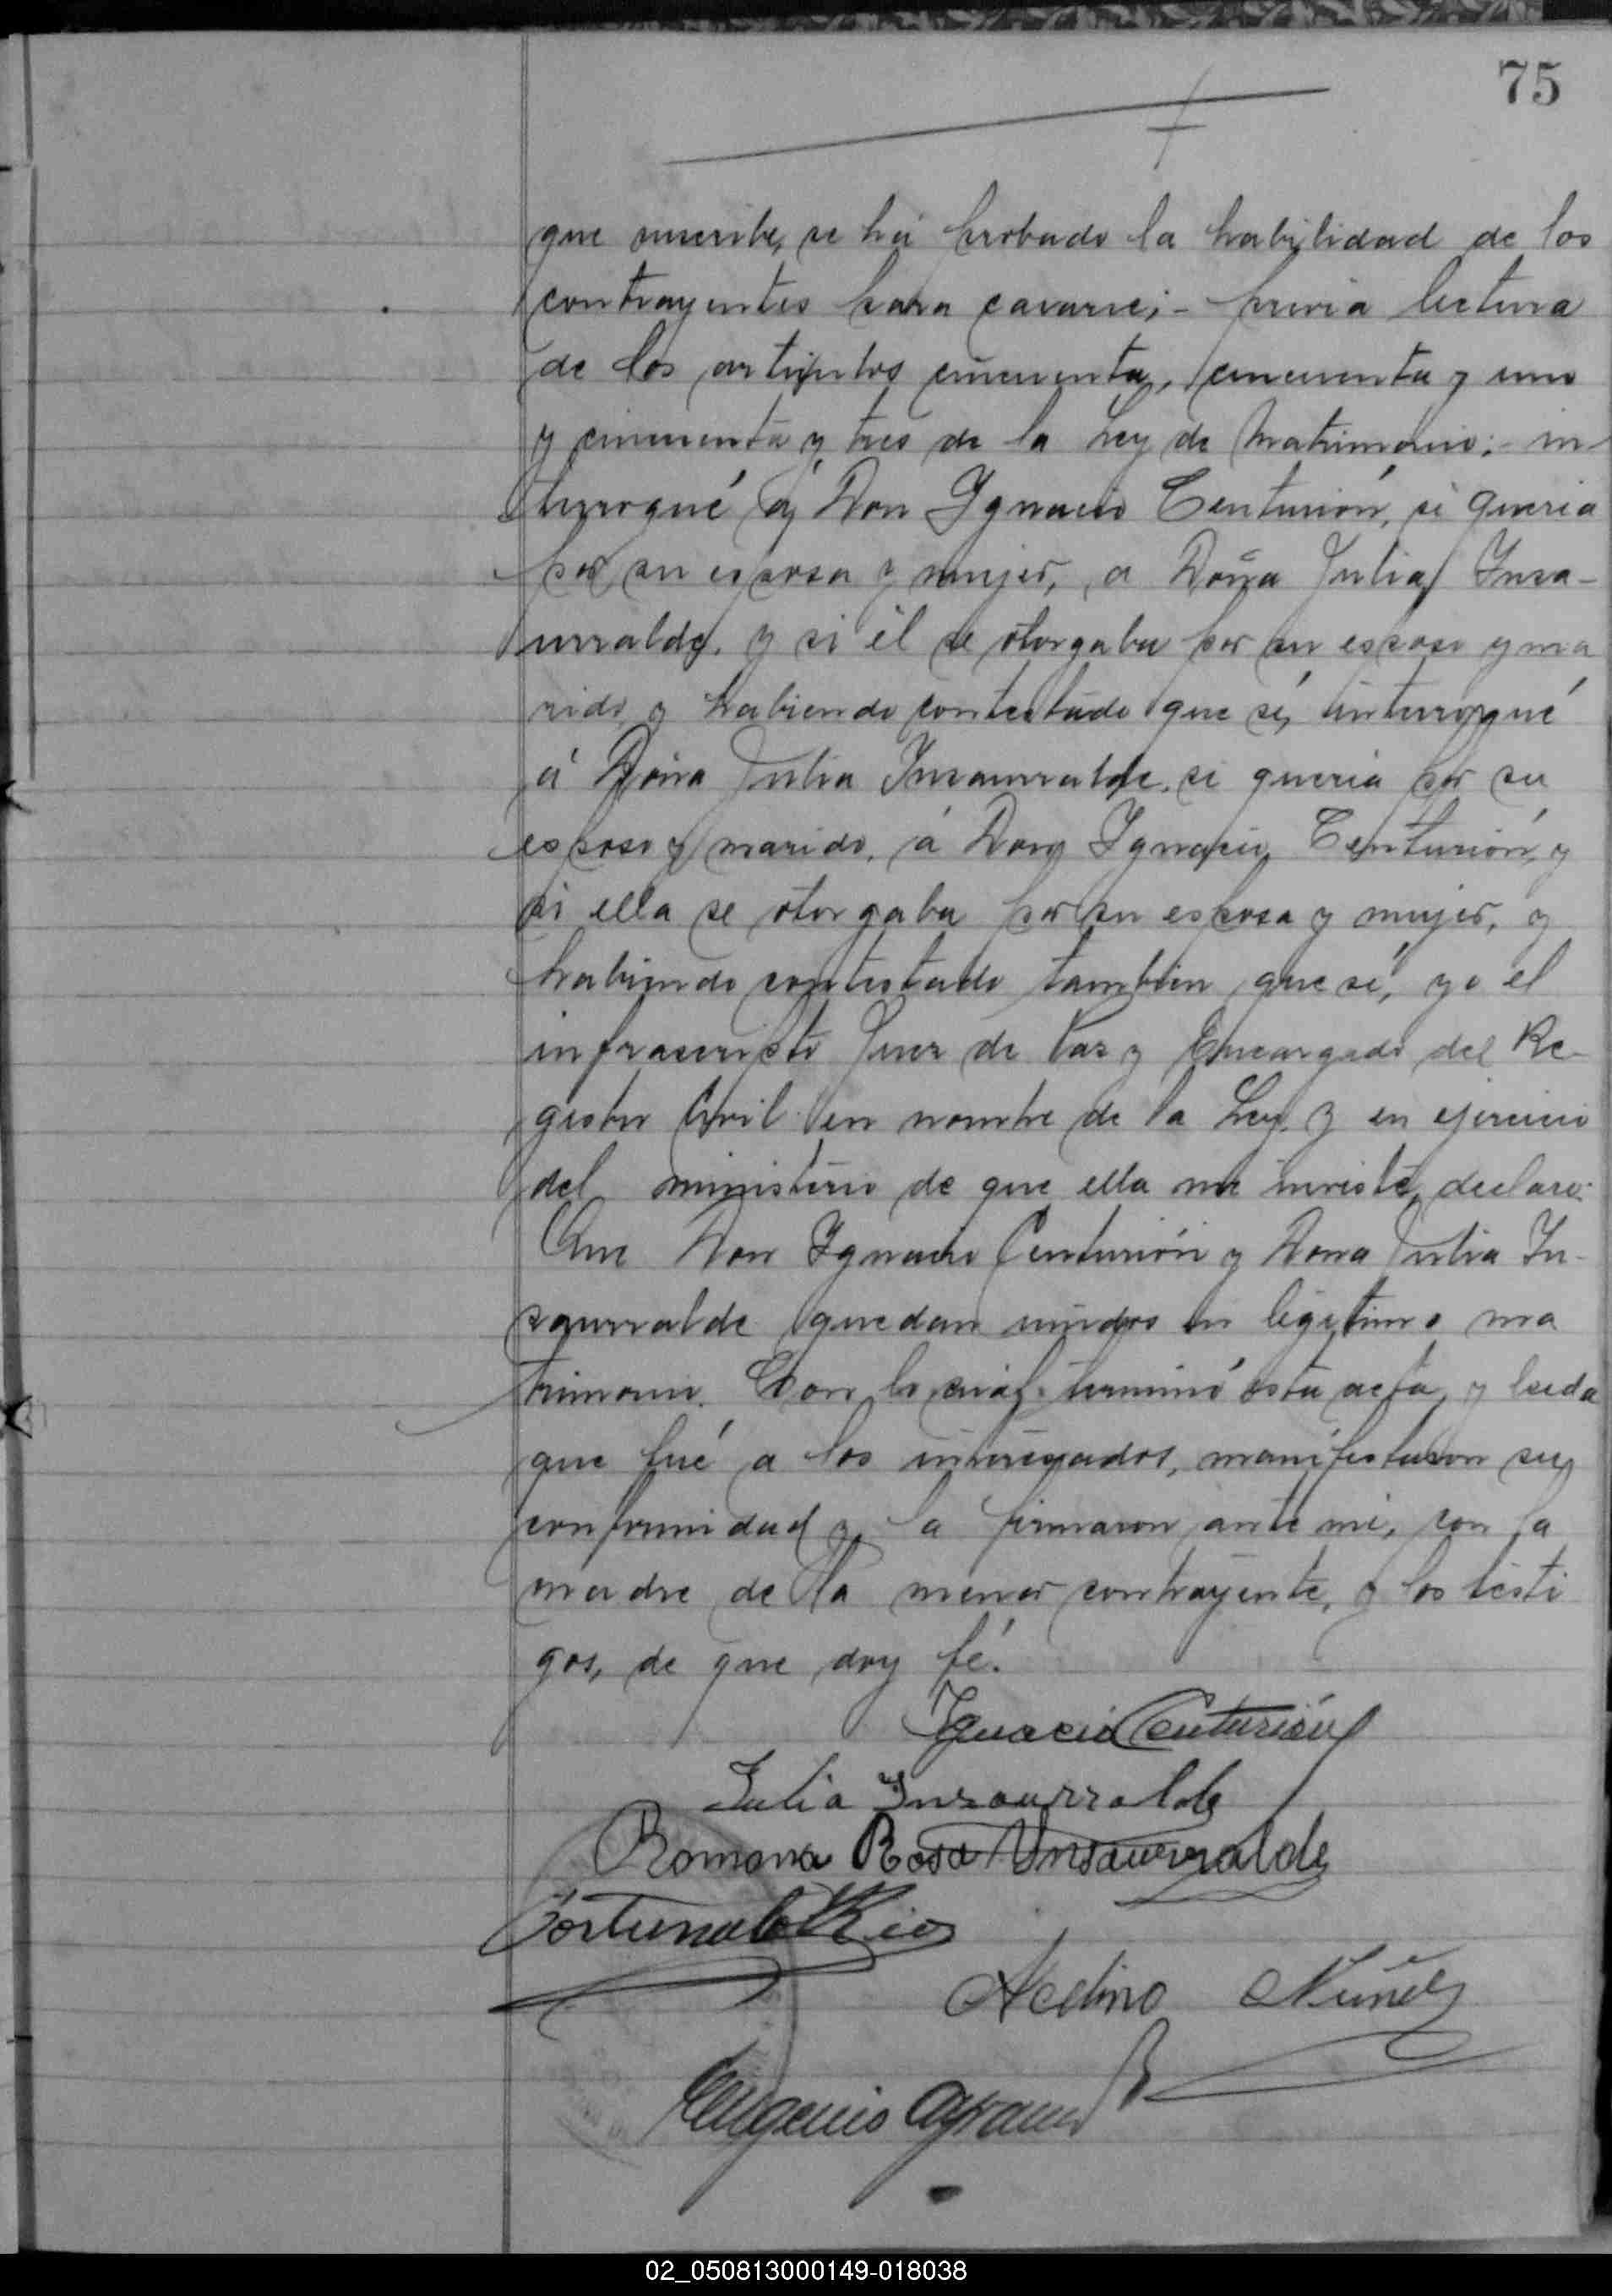 75
que suscribe, se há probado la habilidad de los
contrayentes para casarse; - previa lectura
de los artículos cincuenta, cincuenta y uno
y cincuenta y tres de la Ley de Matrimonio; - in-
terrogué á Don Ygnacio Centurión, si queria
por su esposa y mujer, a Doña Julia Insa-
urralde, y si él se otorgaba por su esposo y ma
rido y habiendo contestado que sí, interrogué
á Doña Julia Insaurralde, si queria por su
esposo y marido, á Don Ygnacio Centurión, y
si ella se otorgaba por su esposa y mujer, y
habiendo contestado tambien que sí, yo el
infrascripto Juez de Paz y Encargado del Re-
gistro Civil en nombre de la Ley, y en ejercicio
del ministerio de que ella me inviste, declaro:
Que Don Ygnacio Centurión y Dona Julia In-
saurralde quedan unidos en legitimo ma
trimonio. Con lo cual terminó esta acta, y leida
que fué a los interesados, manifestaron su
conformidad y la firmaron ante mi, con la
madre de la menor contrayente, y los testi
gos, de que doy fé.
Ygnacio Centurión
Julia Insaurralde
Romona Rosa Ynsaurralde
Fortunato Rios
Nuñez
Eugenio
02_050813000149-018038